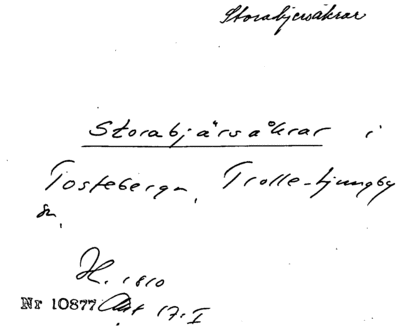 Storabjersåkrar
Storabjärsåkrar i
Tosteberga, Trolle-Ljungby
sn.
H. 1810
Nr 10877 Akt 17. I